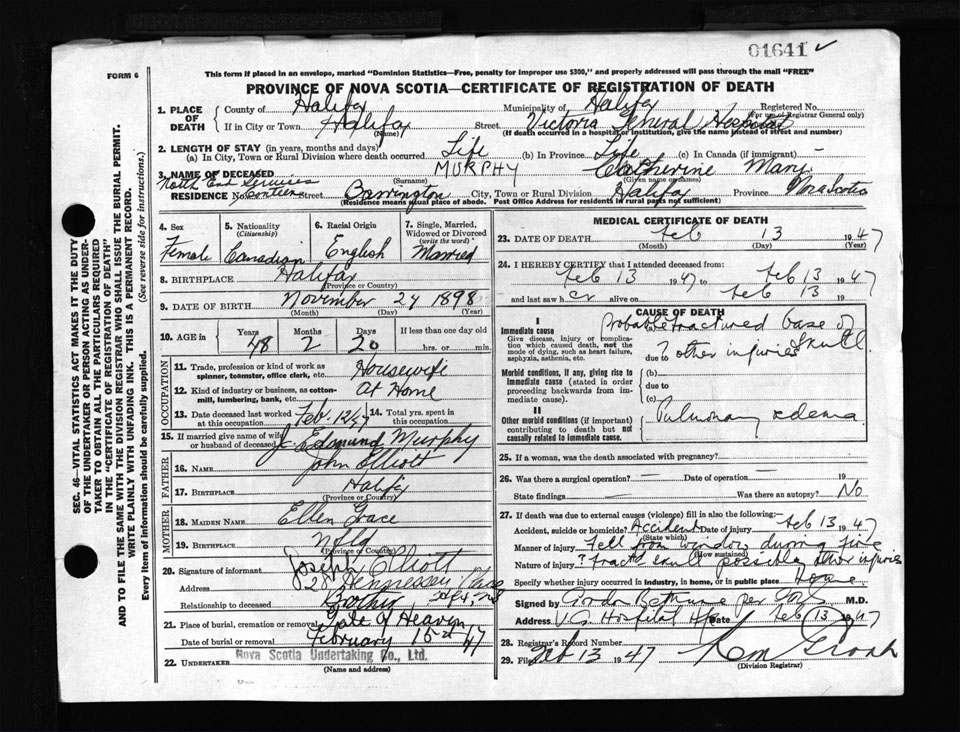 01641 ✓
FORM 6
This form if placed in an envelope, marked "Dominion Statistics—Free, penalty for improper use $300," and properly addressed will pass through the mail "FREE"
PROVINCE OF NOVA SCOTIA—CERTIFICATE OF REGISTRATION OF DEATH
1. PLACE OF DEATH County of Halifax Municipality of Halifax Registered No.
(For use of Registrar General only)
If in City or Town Halifax Street Victoria General Hospital
(Name) (If death occurred in a hospital or institution, give the name instead of street and number)
2. LENGTH OF STAY (in years, months and days)
(a) In City, Town or Rural Division where death occurred Life (b) In Province Life (c) In Canada (if immigrant) —
3. NAME OF DECEASED MURPHY Catherine Mary
(Surname) (Given name or names)
North End Services
RESIDENCE No. Street Barrington City, Town or Rural Division Halifax Province Nova Scotia
(Residence means usual place of abode. Post Office Address for residents in rural parts not sufficient)
4. Sex Female
5. Nationality (Citizenship) Canadian
6. Racial Origin English
7. Single, Married, Widowed or Divorced (write the word) Married
8. BIRTHPLACE Halifax
(Province or Country)
9. DATE OF BIRTH November 24 1898
(Month) (Day) (Year)
10. AGE in Years 48 Months 2 Days 20 If less than one day old
hrs. or min.
OCCUPATION
11. Trade, profession or kind of work as spinner, teamster, office clerk, etc. Housewife
12. Kind of industry or business, as cotton-mill, lumbering, bank, etc. At Home
13. Date deceased last worked at this occupation Feb. 12/47
14. Total yrs. spent in this occupation
15. If married give name of wife or husband of deceased J. Edmund Murphy
FATHER
16. NAME John Elliott
17. BIRTHPLACE Halifax
(Province or Country)
MOTHER
18. MAIDEN NAME Ellen Grace
19. BIRTHPLACE Nfld
(Province or Country)
20. Signature of informant Joseph Elliott
Address 2 Hennessey Place
Relationship to deceased Brother Hfx, NS
21. Place of burial, cremation or removal Gate of Heaven
Date of burial or removal February 15 47
22. UNDERTAKER Nova Scotia Undertaking Co., Ltd.
(Name and address)
MEDICAL CERTIFICATE OF DEATH
23. DATE OF DEATH Feb 13 1947
(Month) (Day) (Year)
24. I HEREBY CERTIFY that I attended deceased from
Feb 13 1947 to Feb 13 1947
and last saw h er alive on Feb 13 19
CAUSE OF DEATH
I
Immediate cause Probable fractured base of skull
Give disease, injury or complication which caused death, not the mode of dying, such as heart failure, asphyxia, asthenia, etc.
due to ? other injuries
Morbid conditions, if any, giving rise to immediate cause (stated in order proceeding backwards from immediate cause)
(b)
due to
(c)
II
Other morbid conditions (if important) contributing to death but not causally related to immediate cause. Pulmonary edema
25. If a woman, was the death associated with pregnancy?
26. Was there a surgical operation? — Date of operation — 19
State findings — Was there an autopsy? No
27. If death was due to external causes (violence) fill in also the following:—
Accident, suicide or homicide? Accident Date of injury Feb 13 1947
(State which)
Manner of injury Fell from window during fire
(How sustained)
Nature of injury ? fract. skull possible other injuries
Specify whether injury occurred in industry, in home, or in public place Home
Signed by Gordon Bethune per M.D.
Address V.G. Hospital Hfx Date Feb 13 1947
28. Registrar's Record Number
29. Filed Feb 13 1947
(Division Registrar)
SEC. 46—VITAL STATISTICS ACT MAKES IT THE DUTY
OF THE UNDERTAKER OR PERSON ACTING AS UNDER-
TAKER TO OBTAIN ALL THE PARTICULARS REQUIRED
IN THE "CERTIFICATE OF REGISTRATION OF DEATH"
AND TO FILE THE SAME WITH THE DIVISION REGISTRAR WHO SHALL ISSUE THE BURIAL PERMIT.
WRITE PLAINLY WITH UNFADING INK. THIS IS A PERMANENT RECORD.
Every item of information should be carefully supplied. (See reverse side for instructions.)